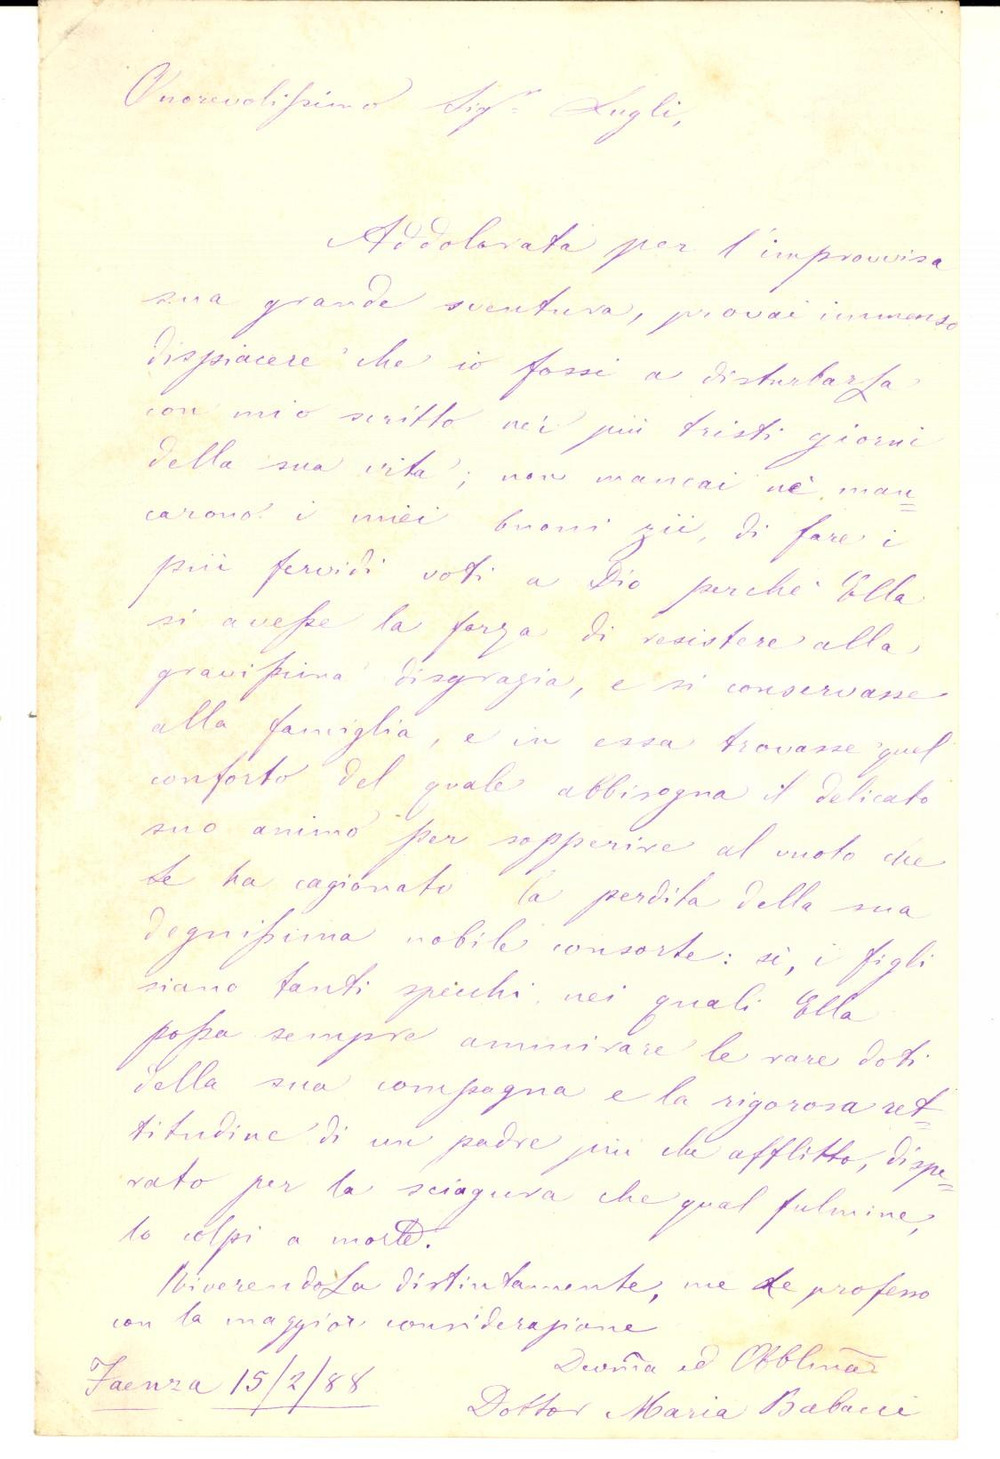 Onorevolissimo Sigr. Lugli,
Addolorata per l'improvvisa
sua grande sventura, provai immenso
dispiacere che io fossi a disturbarLa
con mio scritto nei più tristi giorni
della sua vita; non mancai nè man=
carono i miei buoni zii, di fare i
più fervidi voti a Dio perchè Ella
si avesse la forza di resistere alla
gravissima disgrazia, e si conservasse
alla famiglia, e in essa trovasse quel
conforto del quale abbisogna il delicato
suo animo per sopperire al vuoto che
le ha cagionato la perdita della sua
degnissima nobile consorte: sì, i figli
siano tanti specchi nei quali Ella
possa sempre ammirare le rare doti
della sua compagna e la rigorosa ret=
titudine di un padre più che afflitto, dispe=
rato per la sciagura che qual fulmine,
lo colpì a morte.
RiverendoLa distintamente, me Le professo
con la maggior considerazione
Devoma ed Obblma
Faenza 15/2/88
Dottor Maria Babacci